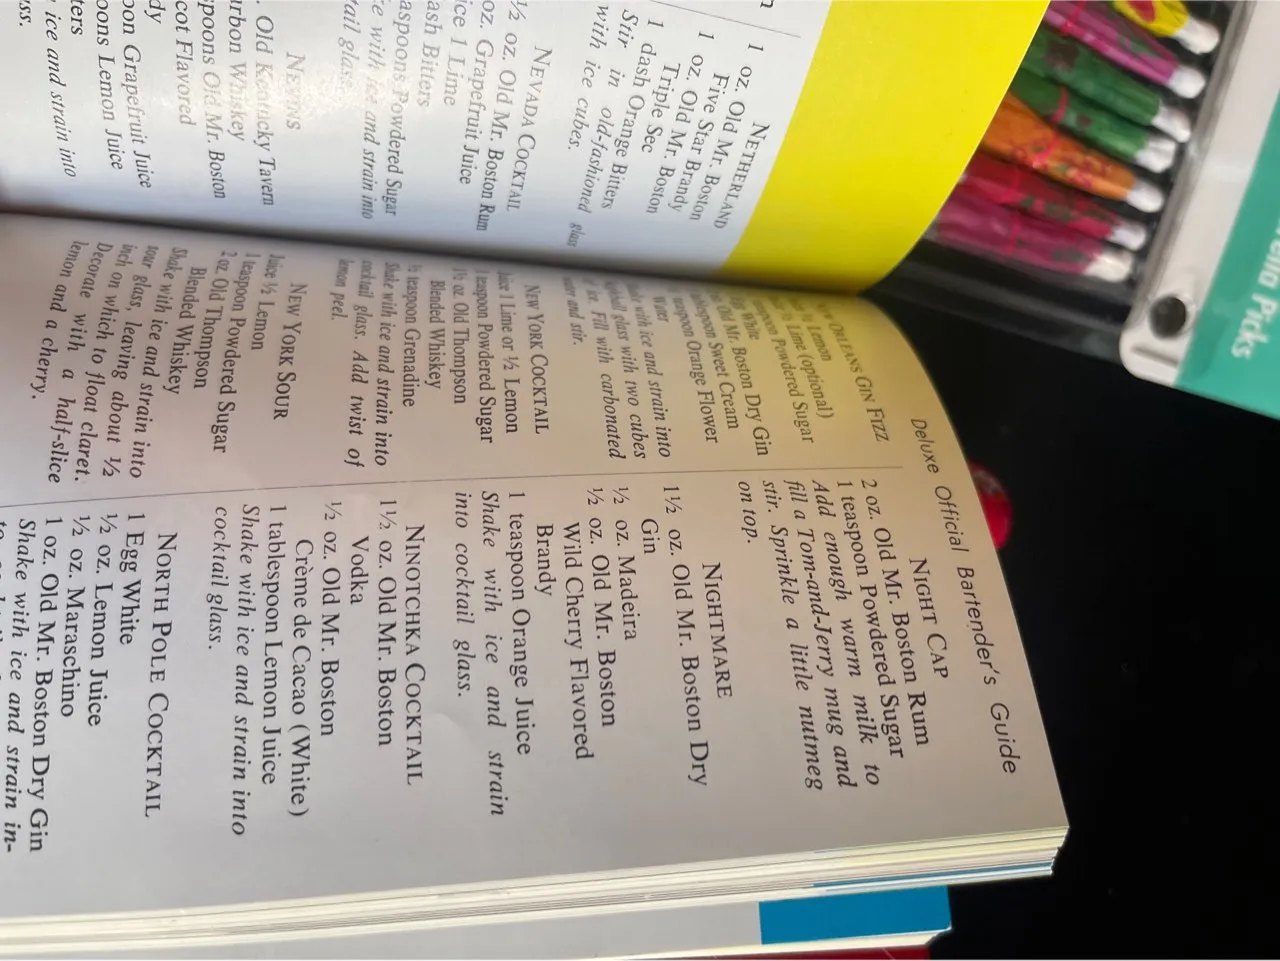 NETHERLAND
1 oz. Old Mr. Boston
Five Star Brandy
1 oz. Old Mr. Boston
Triple Sec
1 dash Orange Bitters
Stir in old-fashioned glass
with ice cubes.
NEVADA COCKTAIL
½ oz. Old Mr. Boston Rum
oz. Grapefruit Juice
ice 1 Lime
ash Bitters
aspoons Powdered Sugar
ke with ice and strain into
tail glass.
NEVINS
Old Kentucky Tavern
urbon Whiskey
spoons Old Mr. Boston
cot Flavored
dy
oon Grapefruit Juice
oons Lemon Juice
ters
ice and strain into
ss.
Deluxe Official Bartender's Guide
ORLEANS GIN FIZZ
½ Lemon
½ Lime (optional)
Powdered Sugar
White
Old Mr. Boston Dry Gin
Sweet Cream
Orange Flower
Water
with ice and strain into
glass with two cubes
ice. Fill with carbonated
and stir.
NEW YORK COCKTAIL
Juice 1 Lime or ½ Lemon
1 teaspoon Powdered Sugar
1½ oz. Old Thompson
Blended Whiskey
½ teaspoon Grenadine
Shake with ice and strain into
cocktail glass. Add twist of
lemon peel.
NEW YORK SOUR
Juice ½ Lemon
1 teaspoon Powdered Sugar
2 oz. Old Thompson
Blended Whiskey
Shake with ice and strain into
sour glass, leaving about ½
inch on which to float claret.
Decorate with a half-slice
lemon and a cherry.
NIGHT CAP
2 oz. Old Mr. Boston Rum
1 teaspoon Powdered Sugar
Add enough warm milk to
fill a Tom-and-Jerry mug and
stir. Sprinkle a little nutmeg
on top.
NIGHTMARE
1½ oz. Old Mr. Boston Dry
Gin
½ oz. Madeira
½ oz. Old Mr. Boston
Wild Cherry Flavored
Brandy
1 teaspoon Orange Juice
Shake with ice and strain
into cocktail glass.
NINOTCHKA COCKTAIL
1½ oz. Old Mr. Boston
Vodka
½ oz. Old Mr. Boston
Crème de Cacao (White)
1 tablespoon Lemon Juice
Shake with ice and strain into
cocktail glass.
NORTH POLE COCKTAIL
1 Egg White
½ oz. Lemon Juice
½ oz. Maraschino
1 oz. Old Mr. Boston Dry Gin
Shake with ice and strain in-
Picks